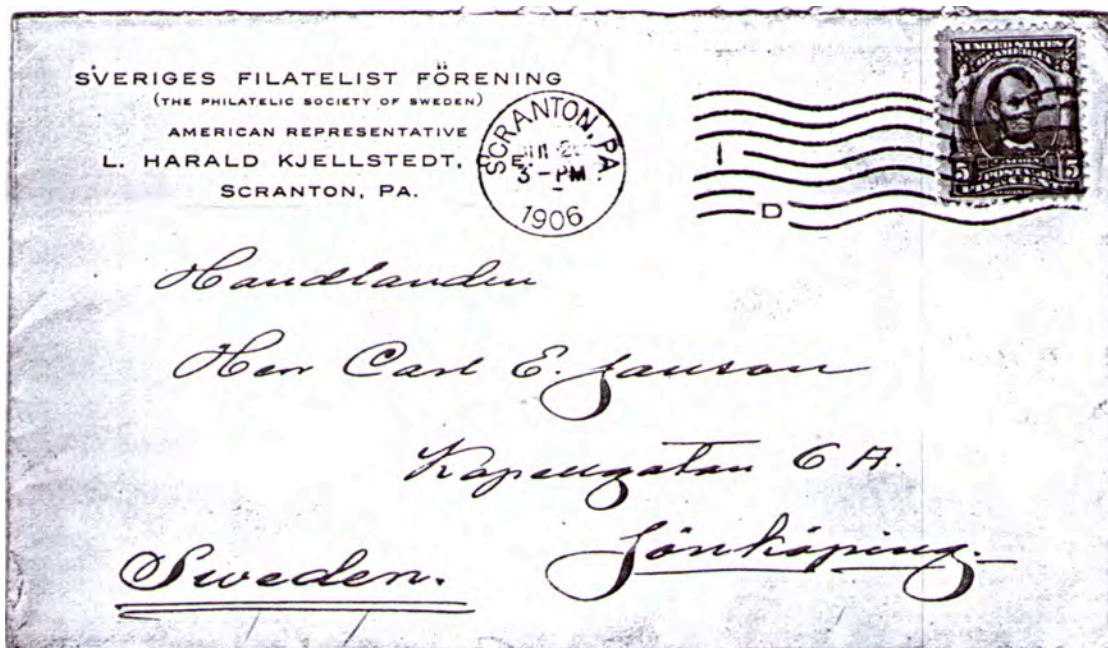 SVERIGES FILATELIST FÖRENING
(THE PHILATELIC SOCIETY OF SWEDEN)
AMERICAN REPRESENTATIVE
L. HARALD KJELLSTEDT, E.
SCRANTON, PA.
SCRANTON, PA.
3-PM
1906
I
D
UNITED STATES
OF AMERICA
5 5
Handlanden
Herr Carl E. Janson
Kapellgatan 6 A.
Jönköping.
Sweden.